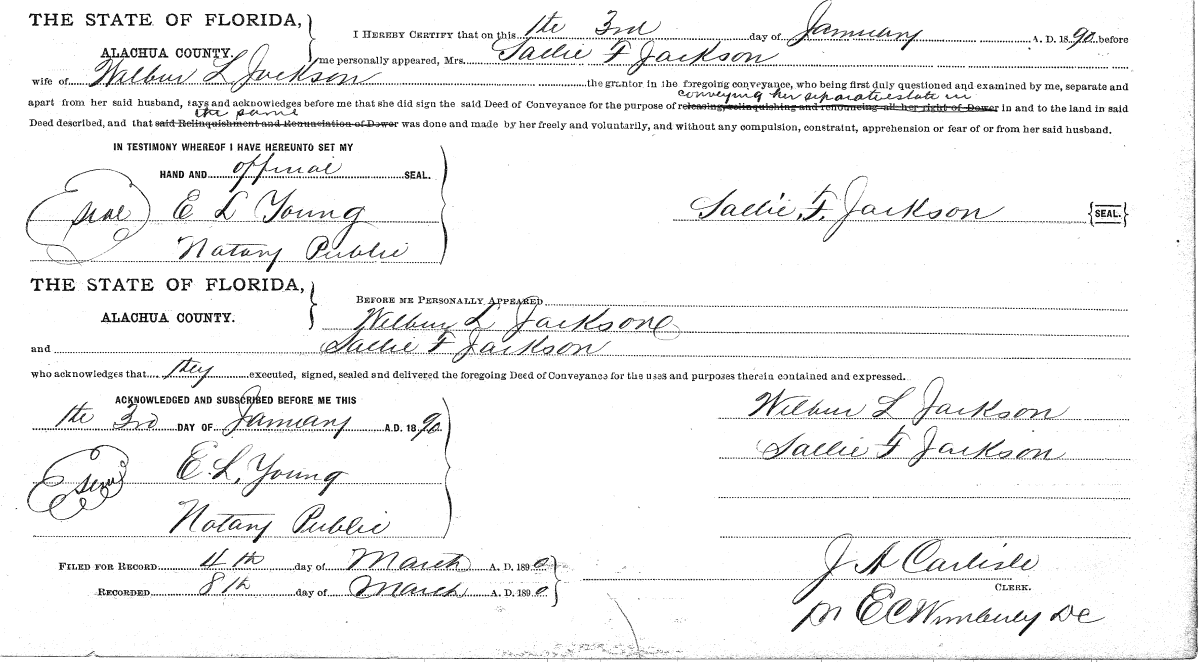 THE STATE OF FLORIDA,
ALACHUA COUNTY.
I HEREBY CERTIFY that on this the 3rd day of January A. D. 1890 before
me personally appeared, Mrs. Sallie F Jackson
wife of Wilbur L Jackson the grantor in the foregoing conveyance, who being first duly questioned and examined by me, separate and
conveying her separate estate in
apart from her said husband, says and acknowledges before me that she did sign the said Deed of Conveyance for the purpose of releasing, relinquishing and renouncing all her right of Dower in and to the land in said
the same
Deed described, and that said Relinquishment and Renunciation of Dower was done and made by her freely and voluntarily, and without any compulsion, constraint, apprehension or fear of or from her said husband.
IN TESTIMONY WHEREOF I HAVE HEREUNTO SET MY
HAND AND official SEAL.
Seal E L Young
Notary Public
Sallie F. Jackson {SEAL.}
THE STATE OF FLORIDA,
ALACHUA COUNTY.
BEFORE ME PERSONALLY APPEARED
Wilbur L Jackson
and Sallie F Jackson
who acknowledges that they executed, signed, sealed and delivered the foregoing Deed of Conveyance for the uses and purposes therein contained and expressed.
ACKNOWLEDGED AND SUBSCRIBED BEFORE ME THIS
the 3rd DAY OF January A.D. 1890
Seal E. L. Young
Notary Public
Wilbur L Jackson
Sallie F Jackson
FILED FOR RECORD 4th day of March A. D. 1890
RECORDED 8th day of March A. D. 1890
J A Carlisle
CLERK.
E C Wimberly DC